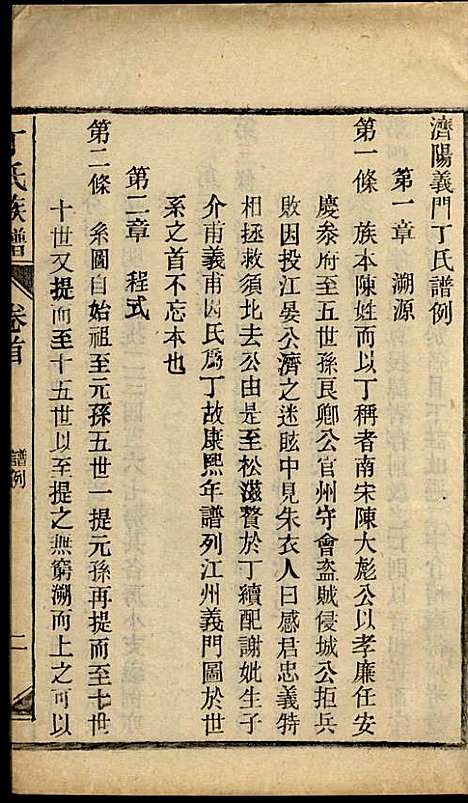 濟陽義門丁氏譜例
第一章 溯源
第一條 族本陳姓而以丁稱者南宋陳大彪公以孝廉任安
慶叅府至五世孫艮卿公官州守會盜賊侵城公拒兵
敗因投江晏公濟之迷眩中見朱衣人曰感君忠義特
相拯救須北去公由是至松滋贅於丁續配謝妣生子
介甫義甫因氏爲丁故康熙年譜列江州義門圖於世
系之首不忘本也
第二章 程式
第二條 系圖自始祖至元孫五世一提元孫再提而至七世
十世又提而至十五世以至提之無窮溯而上之可以
丁氏族譜 卷首 譜例 二